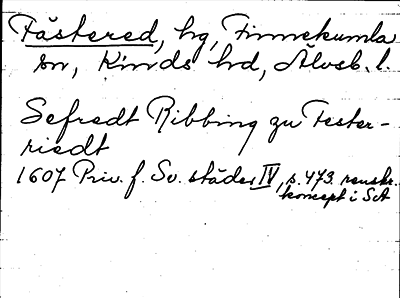 Fästered, hg, Finnekumla
sn, Kinds hd, Älvsb. l.
Sefredt Ribbing zu Fester-
riedt
1607 Priv. f. Sv. städer IV, s. 473. renskr.
koncept i SdA